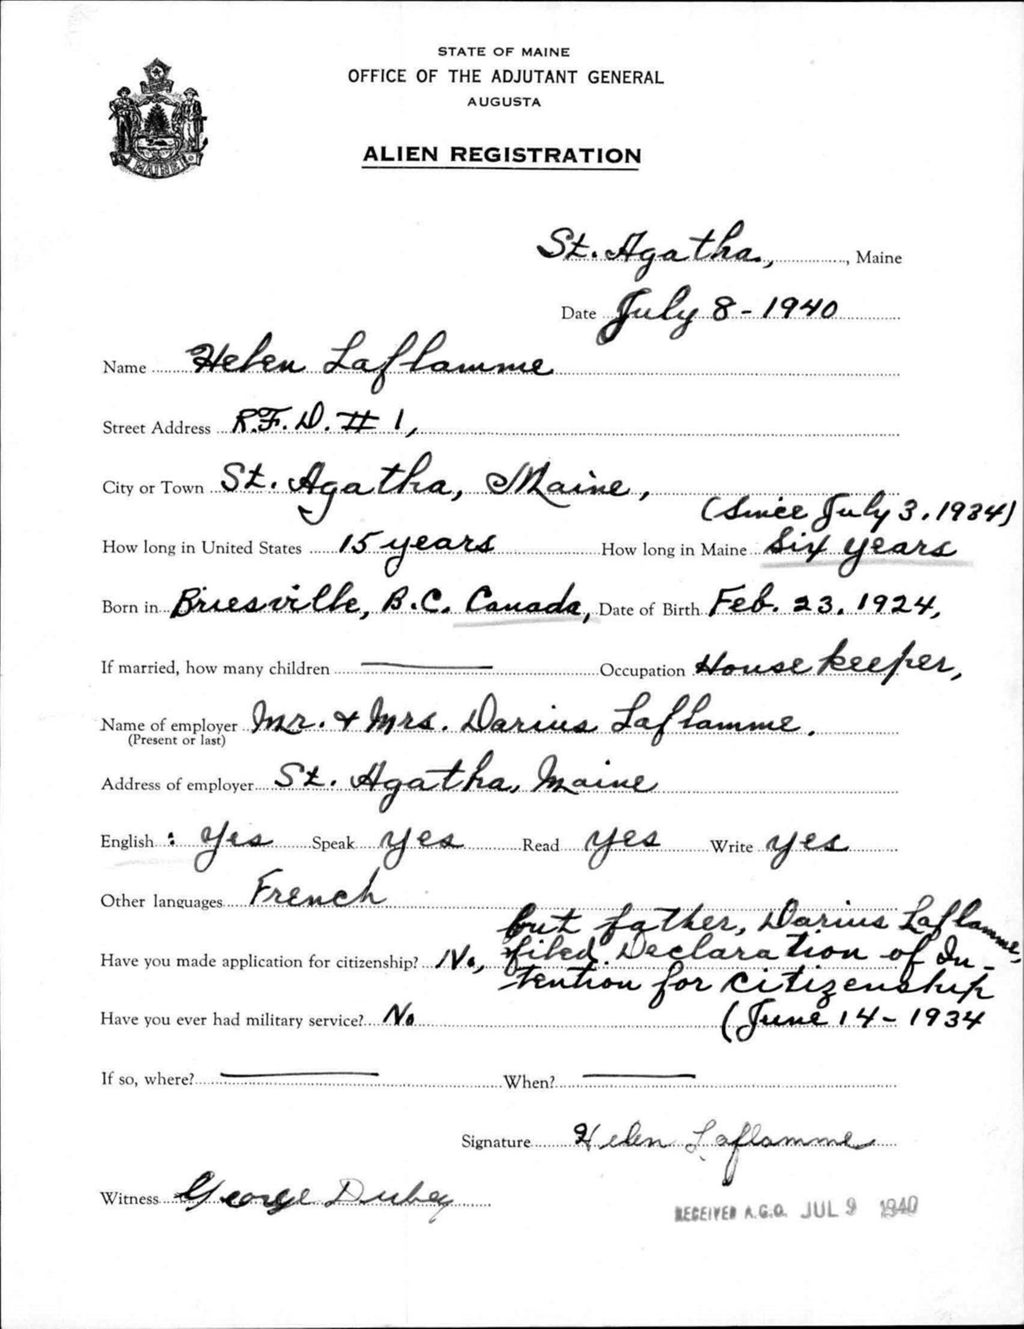 STATE OF MAINE
OFFICE OF THE ADJUTANT GENERAL
AUGUSTA
ALIEN REGISTRATION
MAINE
St. Agatha, , Maine
Date July 8 - 1940
Name Helen Laflamme
Street Address R.F.D. # 1,
City or Town St. Agatha, Maine,
(Since July 3, 1934)
How long in United States 15 years How long in Maine Six years
Born in Briesville, B.C. Canada, Date of Birth Feb. 23, 1924,
If married, how many children Occupation Housekeeper,
Name of employer Mr. & Mrs. Darius Laflamme.
(Present or last)
Address of employer St. Agatha, Maine
English : Yes Speak yes Read yes Write yes
Other languages French
but father, Darius Laflamme,
Have you made application for citizenship? No, filed Declaration of In-
tention for citizenship
Have you ever had military service? No (June 14 - 1934
If so, where? When?
Signature Helen Laflamme
Witness George Dubey
RECEIVED A.G.O. JUL 9 1940